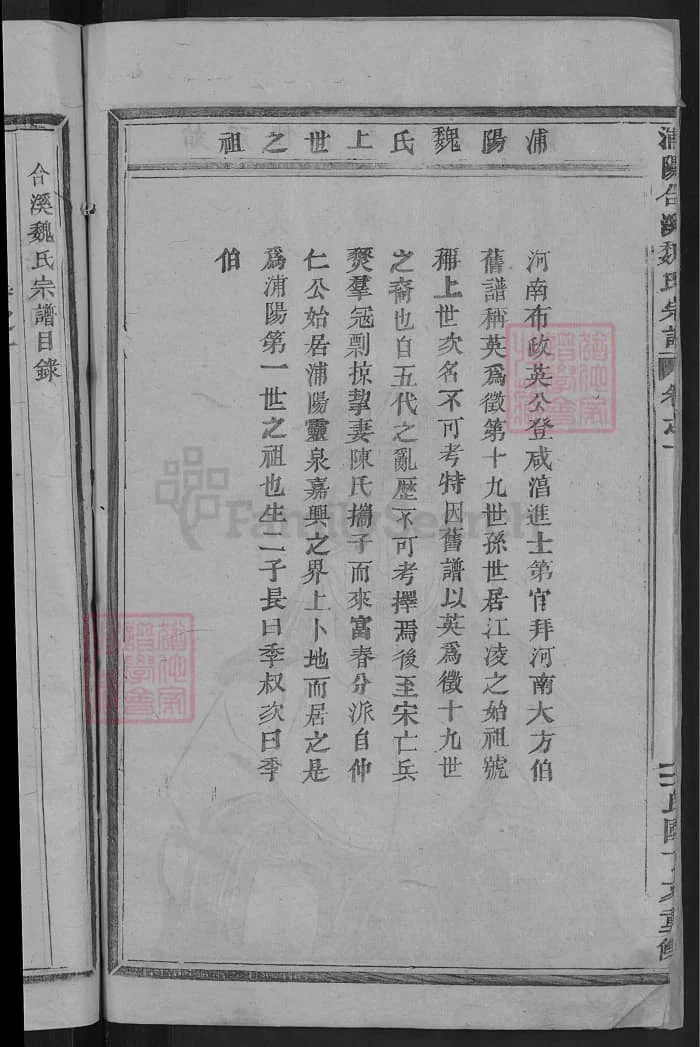 浦陽合溪魏氏宗譜卷之一
浦陽魏氏上世之祖
河南布政英公登咸淳進士第官拜河南大方伯
舊譜稱英爲徵第十九世孫世居江凌之始祖號
稱上世次名不可考特因舊譜以英爲徵十九世
之裔也自五代之亂歷不可考擇焉後至宋亡兵
燹羣冠剽掠挈妻陳氏攜子而來富春分派自仲
仁公始居浦陽靈泉嘉興之界上卜地而居之是
爲浦陽第一世之祖也生二子長曰季叔次曰季
伯
合溪魏氏宗譜目錄
FamilySearch